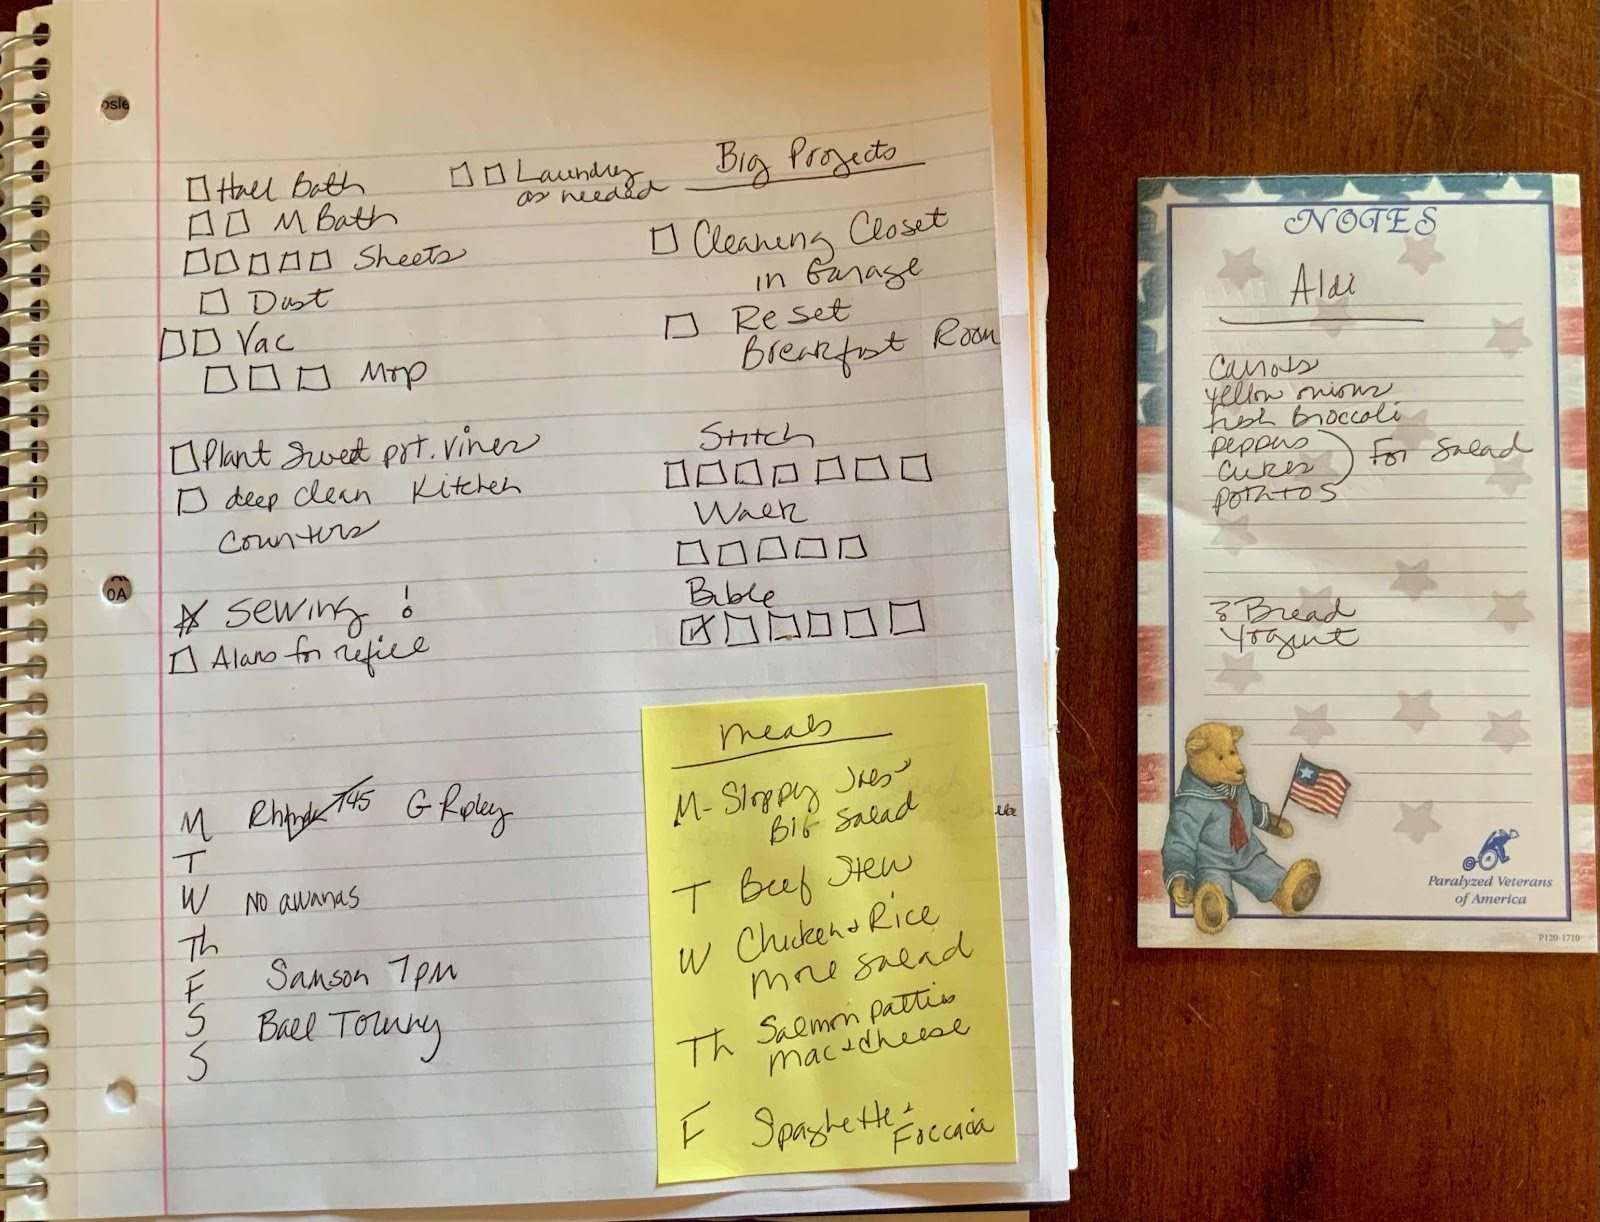 osle
Hall Bath
Laundry
as needed
M Bath
Sheets
Dust
Vac
Mop
Big Projects
Cleaning Closet
in Garage
Reset
Breakfast Room
Plant Sweet pot. vines
deep clean Kitchen
counters
0A
Sewing !
Alans for refill
Stitch
Walk
Bible
M 745 G Ripley
T
W No awanas
Th
F Samson 7pm
S Ball Tourny
S
meals
M- Sloppy Joes
Big Salad
T Beef Stew
W Chicken + Rice
more salad
Th Salmon patties
Mac + cheese
F Spaghette +
Foccacia
NOTES
Aldi
Carrots
yellow onions
fresh broccoli
peppers
cukes
For Salad
potatos
Bread
Yogurt
Paralyzed Veterans
of America
P120-1710